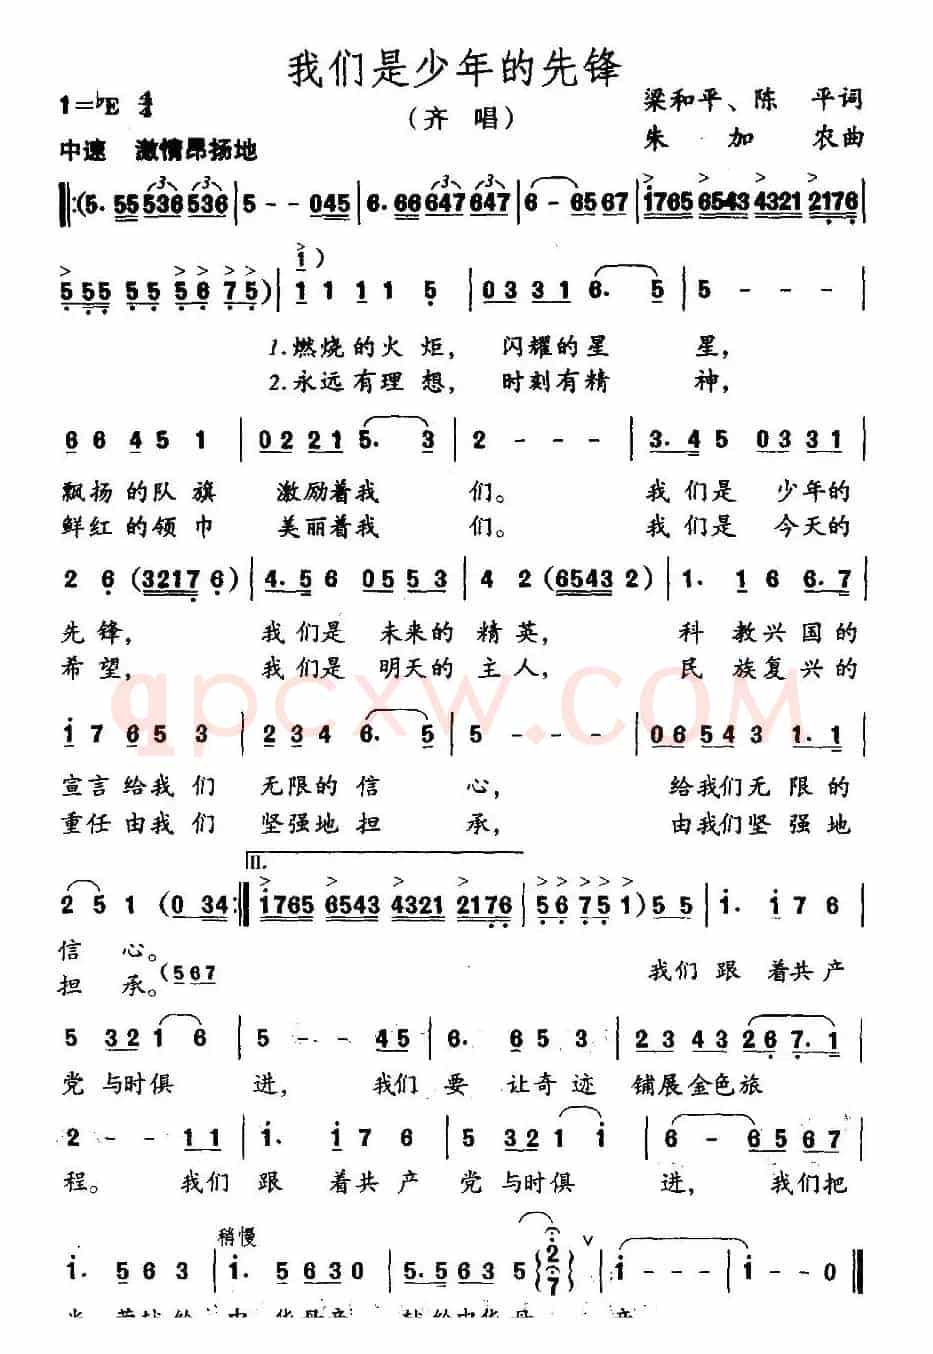 我们是少年的先锋
1=♭E 4/4
（齐 唱）
梁和平、陈 平词
朱 加 农曲
中速 激情昂扬地
‖:(5. 55 536 536 | 5 - - 045 | 6. 66 647 647 | 6 - 65 67 | i765 6543 4321 2176 |
555 55 56 75) | 1 1 1 1 1 5 | 0 3 3 3 1 6. 5 | 5 - - - |
1.燃烧的火 炬， 闪耀的星 星，
2.永远有理 想， 时刻有精 神，
6 6 4 5 1 | 0 2 2 2 1 5. 3 | 2 - - - | 3. 4 5 0 3 3 1 |
飘扬的队 旗 激励着我 们。 我们是 少年的
鲜红的领 巾 美丽着我 们。 我们是 今天的
2 6 (3217 6) | 4. 5 6 0 5 5 3 | 4 2 (6543 2) | 1. 1 6 6. 7 |
先锋， 我们是 未来的 精英， 科 教兴国的
希望， 我们是 明天的 主人， 民 族复兴的
qpcxw.COM
i 7 6 5 3 | 2 3 4 6. 5 | 5 - - - | 0 6 5 4 3 1. 1 |
宣言给我们 无限的信 心， 给我们无限的
重任由我们 坚强地担 承， 由我们坚强地
II.
2 5 1 (0 34 :‖ i765 6543 4321 2176 | 56 75 1) 5 5 | i. i 7 6 |
信 心。
担 承。 (5 6 7
我们 跟 着共产
5 3 2 1 6 | 5 - - 4 5 | 6. 6 5 3 | 2 3 4 3 2 6 7. 1 |
党 与时俱 进， 我们 要 让奇迹 铺展金色旅
2 - - 1 1 | i. i 7 6 | 5 3 2 1 i | 6 - 5 6 7 |
程。 我们 跟 着共产 党 与时俱 进， 我们把
稍慢
i. 5 6 3 | i. 5 6 3 0 | 5. 5 6 3 5 2 7 | i - - - | i - 0 ‖